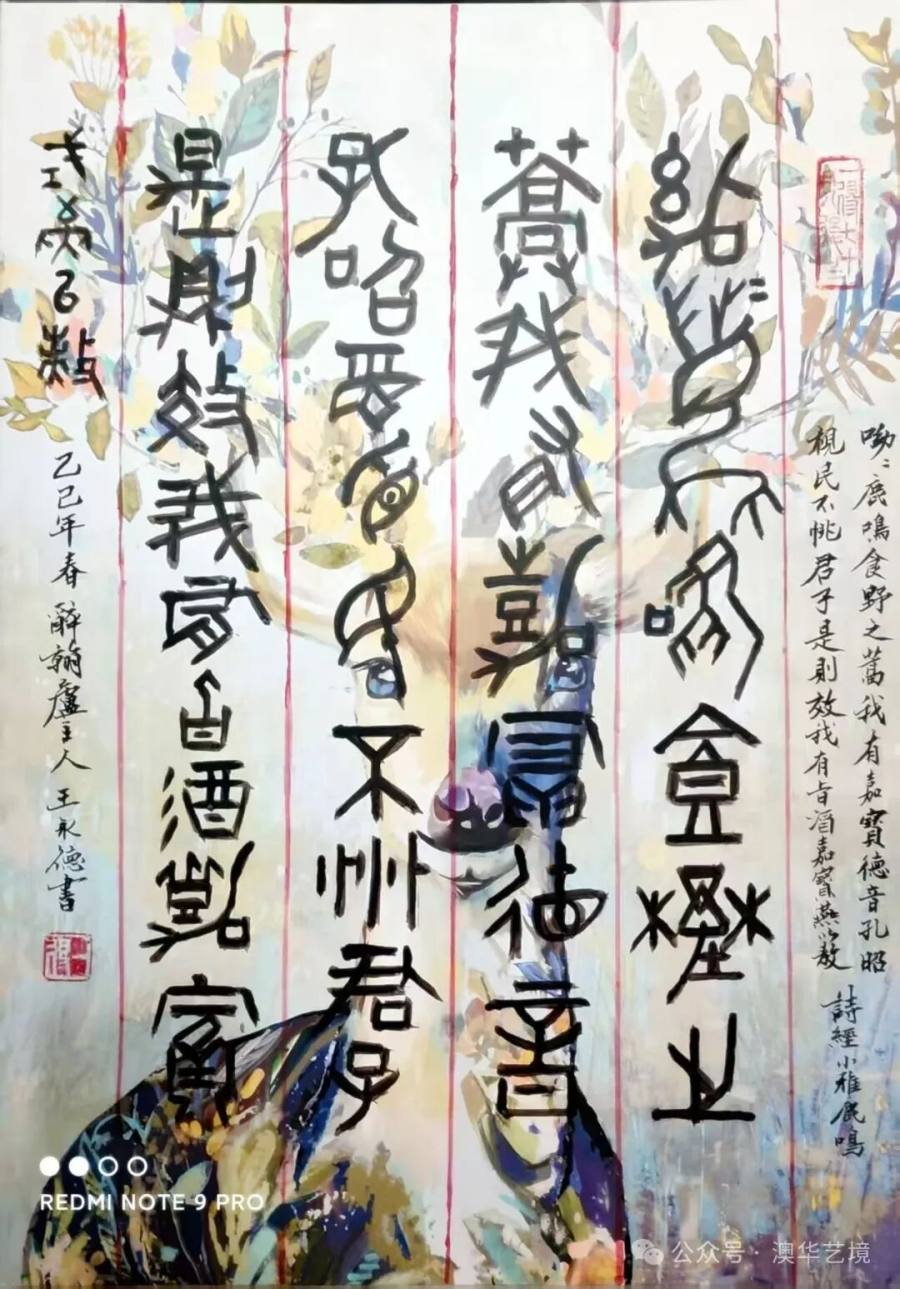 呦〻鹿鳴食野之蒿我有嘉賓德音孔昭
視民不恌君子是則效我有旨酒嘉賓燕以敖
詩經小雅鹿鳴
呦〻鹿鳴食野之
蒿我有嘉賓德音
孔昭視民不恌君子
是則效我有旨酒嘉賓
式燕以敖
乙巳年春 醉翰廬主人 王永德書
REDMI NOTE 9 PRO
公众号·澳华艺境